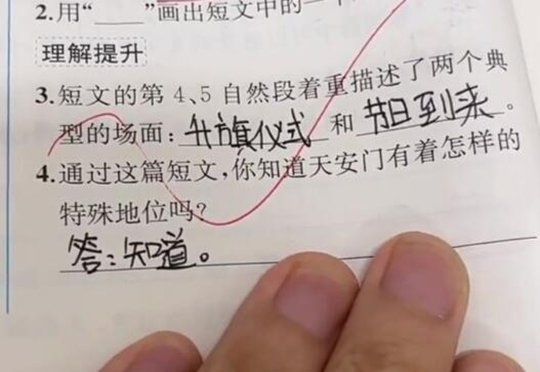 2.用“____”画出短文中的一
理解提升
3.短文的第4、5自然段着重描述了两个典
型的场面：升旗仪式 和 节日到来。
4.通过这篇短文，你知道天安门有着怎样的
特殊地位吗？
答：知道。